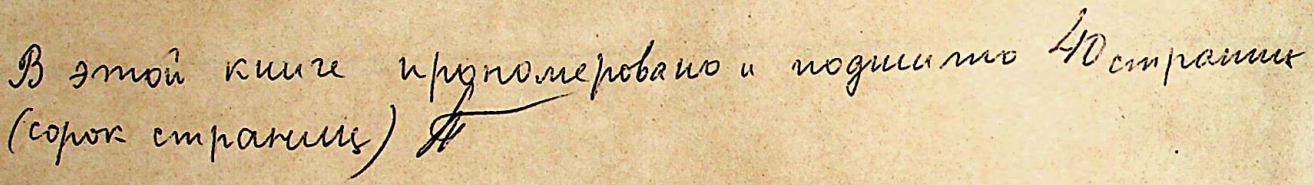 В этой книге прономеровано и подшито 40 страниц
(сорок страниц)